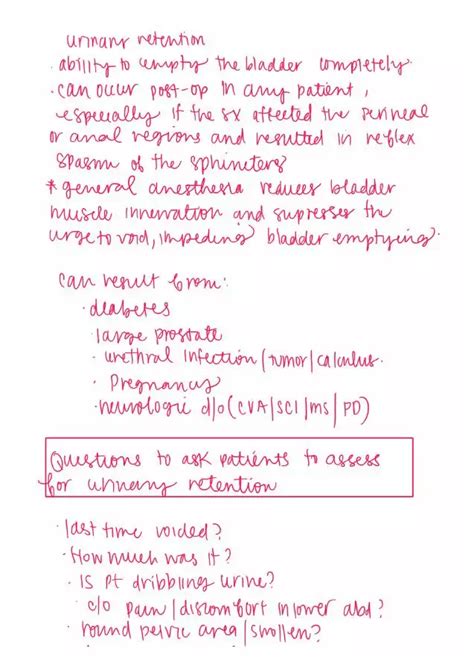 urinary retention
· ability to empty the bladder completely.
· can occur post-op in any patient,
especially if the sx affected the perineal
or anal regions and resulted in reflex
spasm of the sphincters
* general anesthesia reduces bladder
muscle innervation and supresses the
urge to void, impeding bladder emptying.
can result from:
· diabetes
· large prostate
· urethral infection/tumor/calculus.
· Pregnancy
· neurologic d/o (CVA/SCI/MS/PD)
Questions to ask patients to assess
for urinary retention
· last time voided?
· How much was it?
· IS Pt dribbling urine?
c/o pain/discomfort in lower abd?
· round pelvic area/swollen?